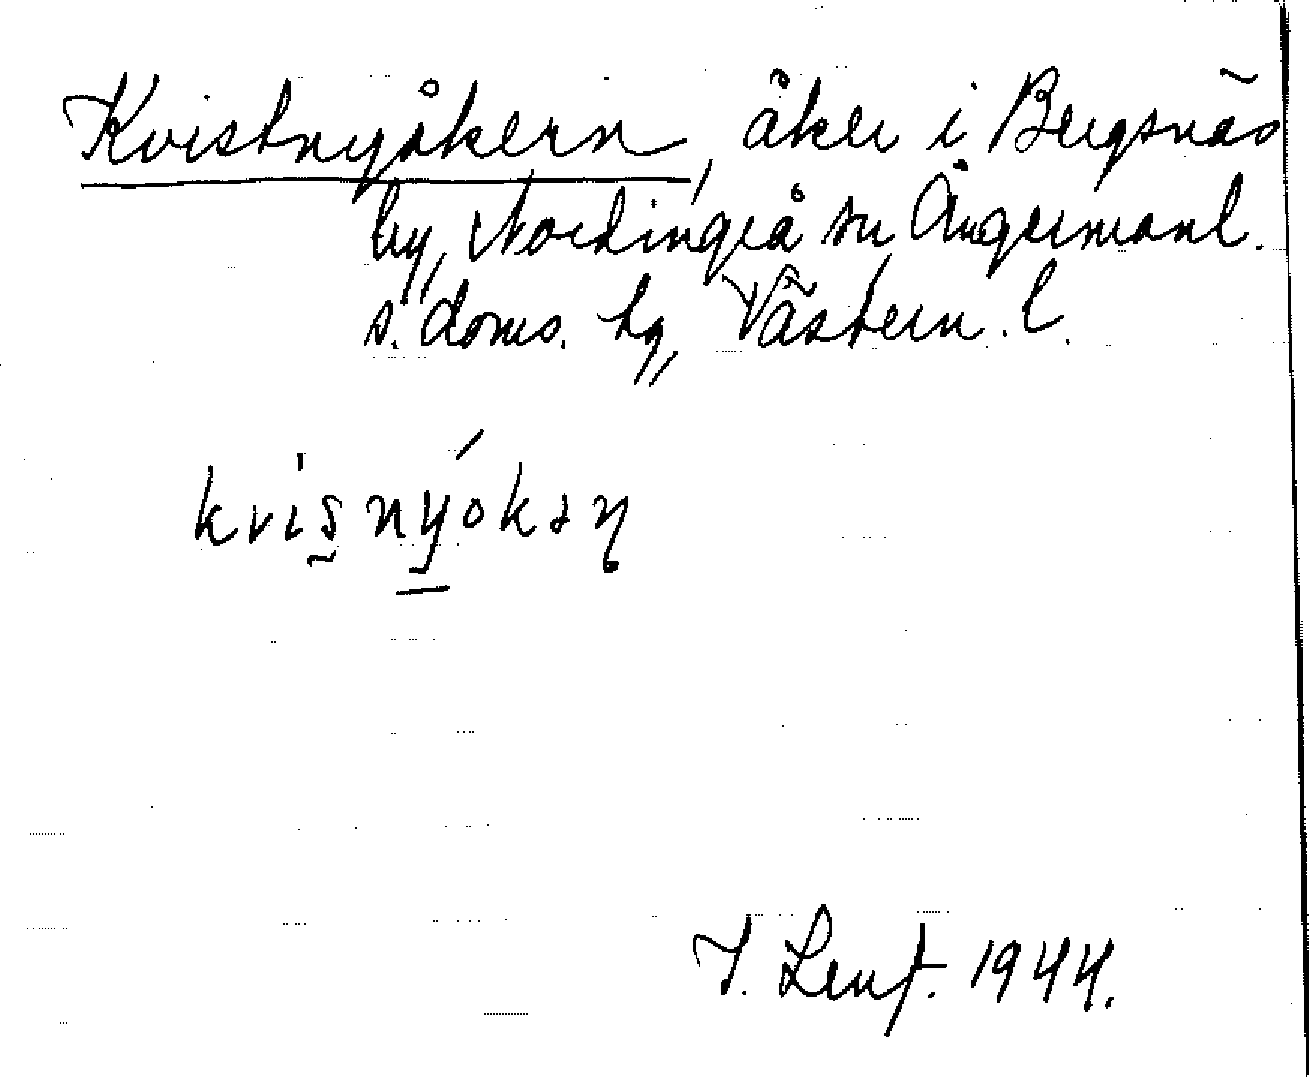 Kvistnyåkern, åker i Bergsnäs
by, Nordingrå sn Ångermanl.
s. doms. hg, Västern. l.
kvisnýokəɳ